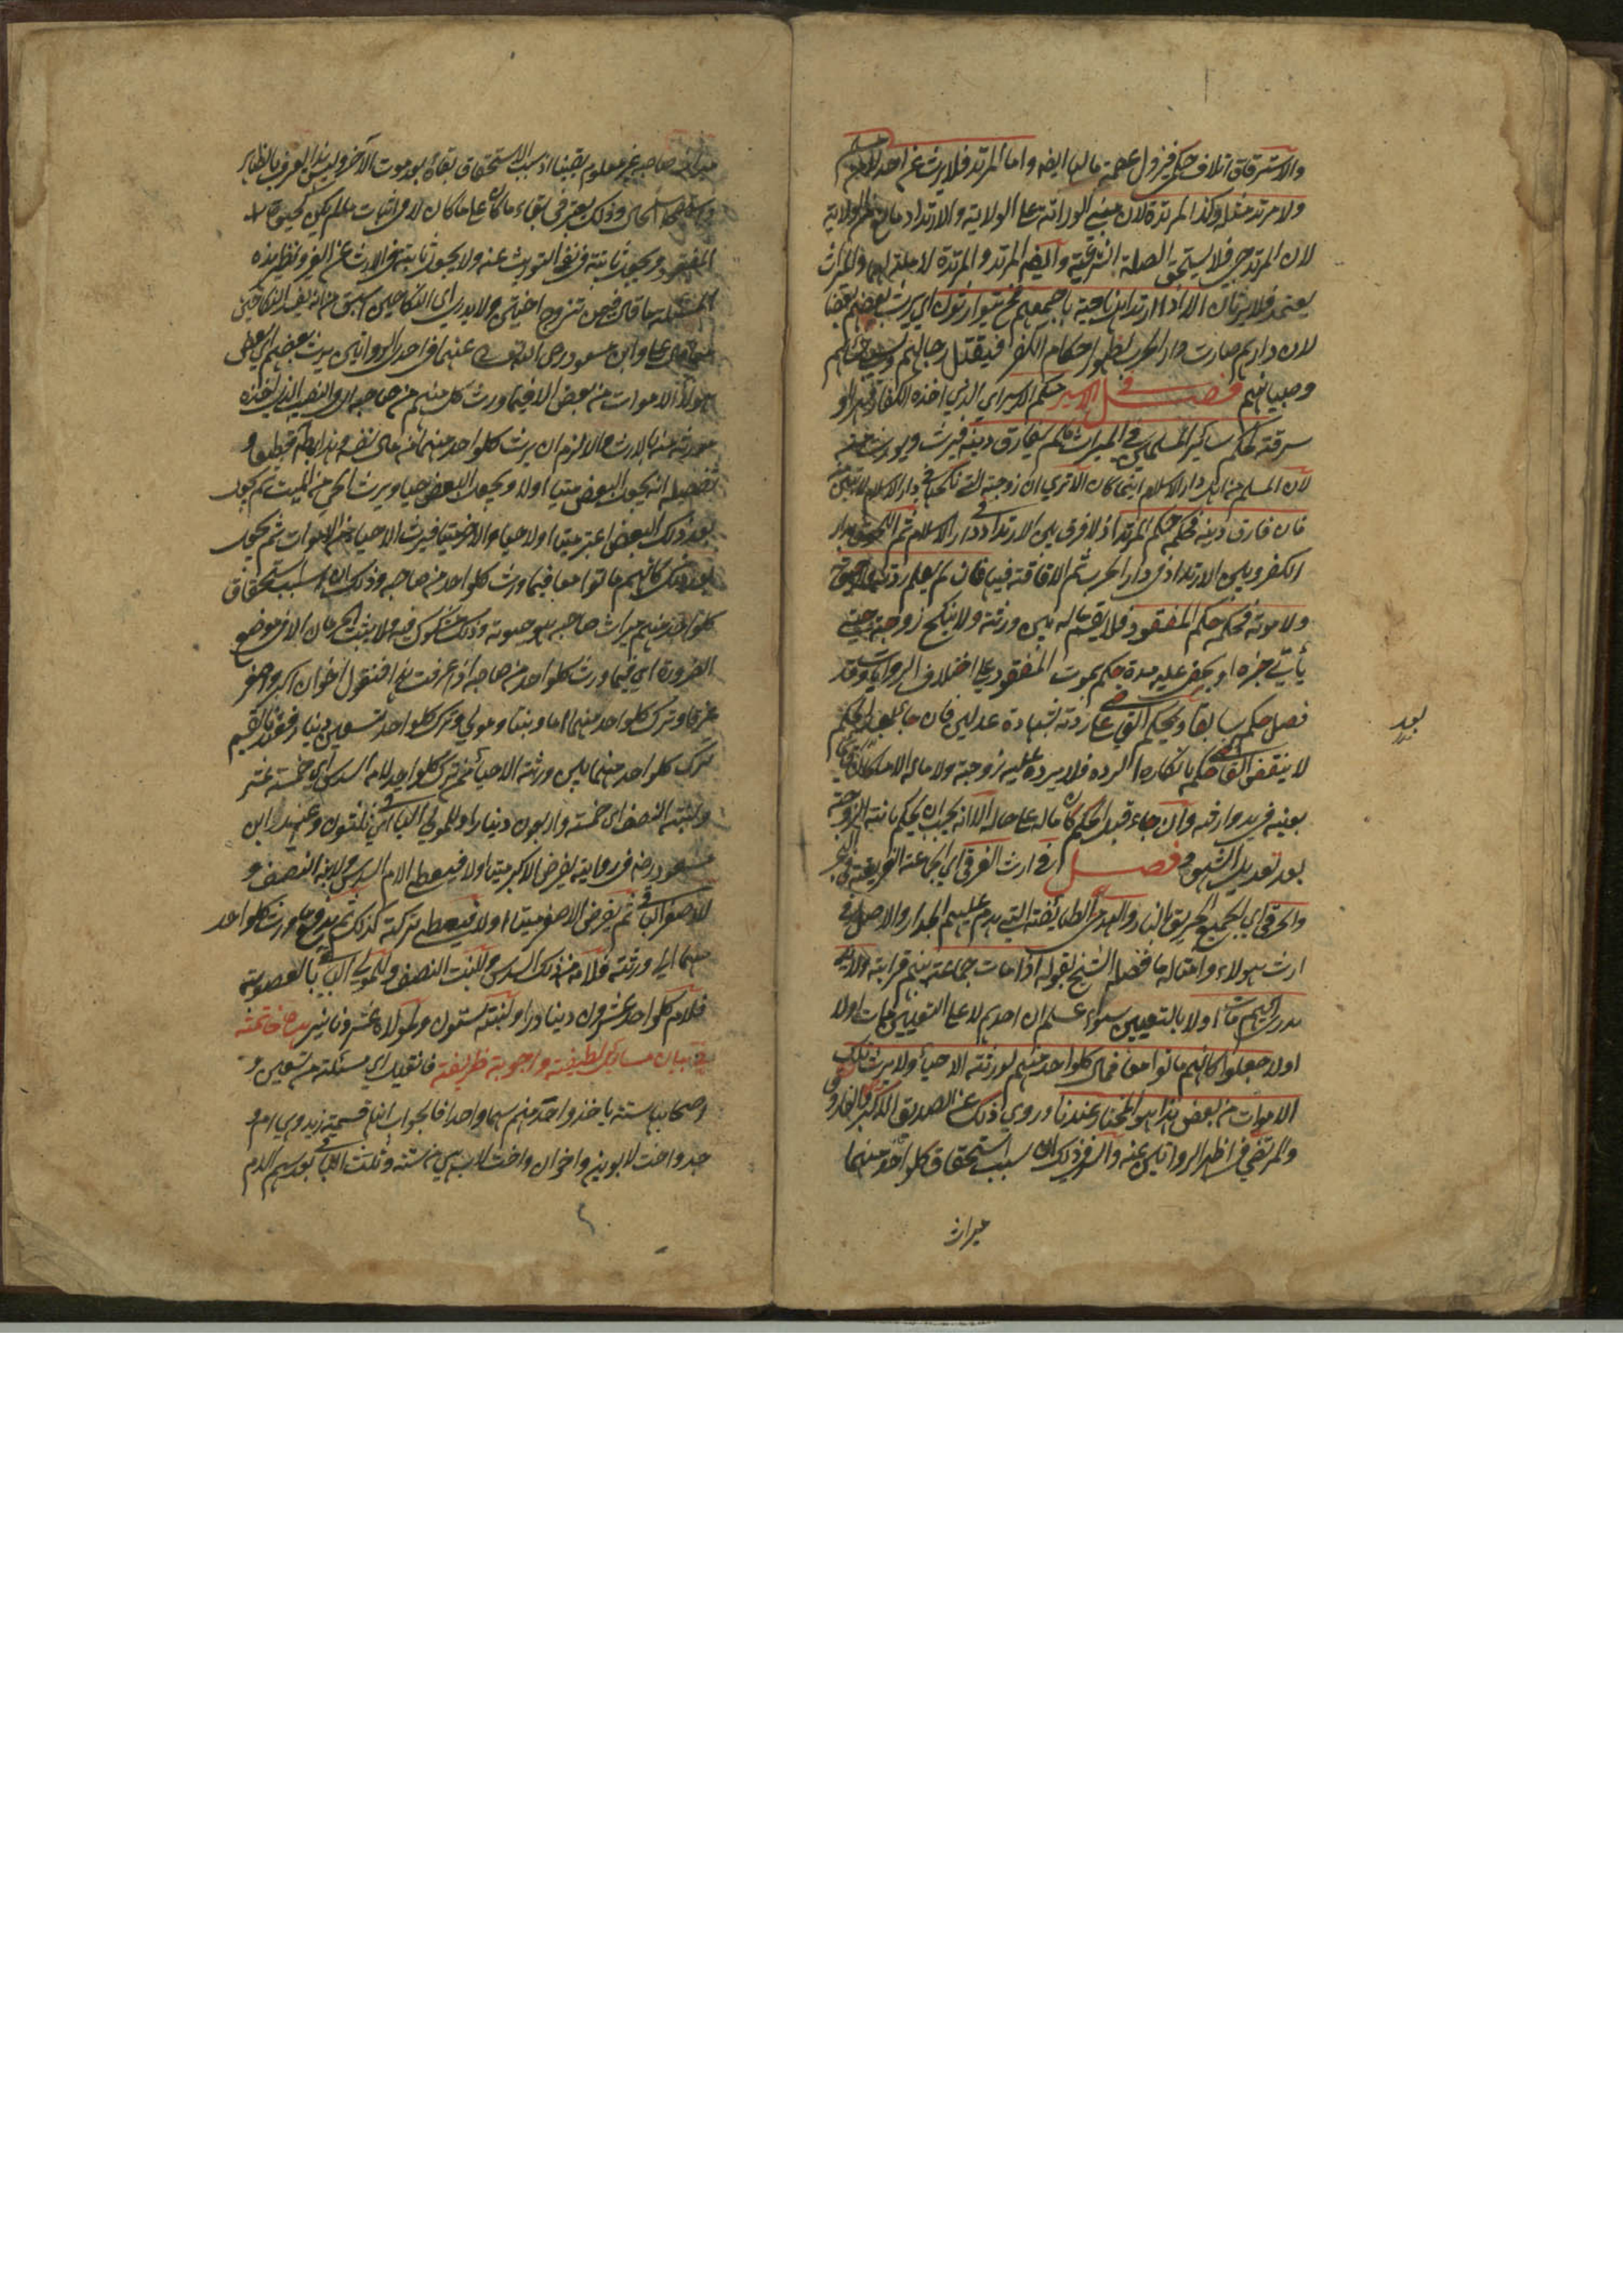 والاسترقاق اتلاف حكمي فيزول عصمة مالها ايضه واما المرتد فلا يرث عن احد
ولا مرتد مثله وكذا المرتدة لان مبنى الوراثة على الولاية والارتداد مانع الولاية
لان المرتد جني فلا يستحق الصلة الشرعية وايضه المرتد والمرتدة لا ملة لهما والميراث
يعتمد فلا يرثان الا اذا ارتد اهل ناحية باجمعهم فح يتوارثون اي يرث بعضهم بعضا
لان دارهم صارت دار الحرب لظهور احكام الكفر فيقتل رجالهم
وصبيانهم فصل في الاسير حكم الاسير اي الذي اخذه الكفار قهرا او
سرقة كحكم سائر المسلمين في الميراث ما لم يفارق دينه فيرث ويورث منه
لان المسلم من اهل دار الاسلام اينما كان الا ترى ان زوجته التي نكحها في دار الاسلام لا تبين
فان فارق دينه فحكمه حكم المرتد اذ لا فرق بين الارتداد في دار الاسلام ثم اللحوق بدار
الكفر وبين الارتداد في دار الحرب ثم الاقامة فيها فان لم يعلم ردته
ولا موته فحكمه حكم المفقود فلا يقسم ماله بين ورثته ولا ينكح زوجته حتى
يأتي خبره او يمضى عليه مدة يحكم بموت المفقود على اختلاف الروايات وقد
فصل حكمه سابقا ويحكم القاضي على ردته بشهادة عدلين فان جاء بعد الحكم
لا ينقض القاضي حكمه بانكاره الردة فلا يرد عليه زوجته ولا ماله الا ما كان
بعينه في يد وارثه وان جاء قبل الحكم كان ماله على حاله الا انه يجب ان يحكم بانه الزوجة
بعد تعديل الشهود فصل في ارث الغرقى اي الجماعة الغريقة في البحر
والحرقى اي الجميع الحريق بالنار والهدمى الطائفة التي يهدم عليهم الجدار والاصل في
ارث هولاء وامثاله ما فصله الشيخ بقوله اذا مات جماعة بينهم قرابة ولا
يدرى ايهم مات اولا بالتعيين سواء علم ان احدهم لا على التعيين مات اولا
اولا جعلوا كانهم ماتوا معا فمال كل واحد منهم لورثته الاحياء ولا يرث تلك
الاموات من بعض هذا هو المختار عندنا وروي ذلك عن الصديق الاكبر والفاروق
والمرتضى في اظهر الروايتين عنه والسر في ذلك ان سبب استحقاق كل واحد منهما
ميراث
بعد
ميراث صاحبه غير معلوم يقينا اذ سبب الاستحقاق بقاؤه بعد موت الآخر وليس هذا يعرف بالظاهر
وذلك يعتبر في ابقاء ما كان على ما كان لا في اثبات ما لم يكن كحيوة
المفقود يجعل ثابتة في نفي التوريث عنه ولا يجعل ثابتة في الارث عن الغير ونظير هذه
المسئلة ما قال فيمن تزوج اختين ولا يدري اي النكاحين اسبق
على وابن مسعود رضى الله تعالى عنهما في احدى الروايتين يرث بعضهم اي بعض
هولاء الاموات من بعض الا فيما ورث كل منهم من صاحبه
مورثه منه بالارث والا لزم ان يرث كل واحد منهما من مال نفسه وهذا باطل قطعا و
تفصيله انه يجعل البعض ميتا اولا ويجعل البعض حيا ويرث الحي من الميت ثم يجعل
بعد ذلك البعض اعتبر ميتا اولا حيا والآخر ميتا فيرث الاحياء من الاموات ثم يجعل
بعد ذلك كانهم ماتوا معا فيما ورث كل واحد من صاحبه وذلك ان سبب استحقاق
كل واحد منهم ميراث صاحبه هو حيوته وذلك مشكوك فيه ولا يثبت الحرمان الا في موضع
الضرورة اي فيما ورث كل واحد من صاحبه اذا عرفت هذا فنقول اخوان اكبر واصغر
غرقا وترك كل واحد منهما اما وبنتا ومولى وترك كل واحد تسعين دينارا فعندنا تقسيم
تركة كل واحد منهما بين ورثته الاحياء من تركة كل واحد لامه السدس اي خمسة عشر
ولبنته النصف اي خمسة واربعون دينارا وللمولى الباقي ثلثون وعند ابن
مسعود رضه في رواية يفرض الاكبر ميتا اولا فيعطى الام السدس ولابنته النصف و
للاصغر الباقي ثم يفرض الاصغر ميتا اولا فيعطى تركته كذلك ثم يوزع ما ورث كل واحد
منهما الى ورثته فلامه من ذلك السدس وللبنت النصف وللمولى الباقي بالعصوبة
فلام كل واحد عشرون دينارا ولبنته ستون ولمولاه عشرة دنانير خاتمة
في بيان مسائل لطيفة واجوبة ظريفة فان قيل اي مسئلة من تسعين و
اصحابها ستة ياخذ واحد منهم سهما واحدا فالجواب انها قسمة زيد وهي ام و
جد واخت لابوين واخوان واخت لاب هي من ستة وثلث الباقي بعد سهم الام